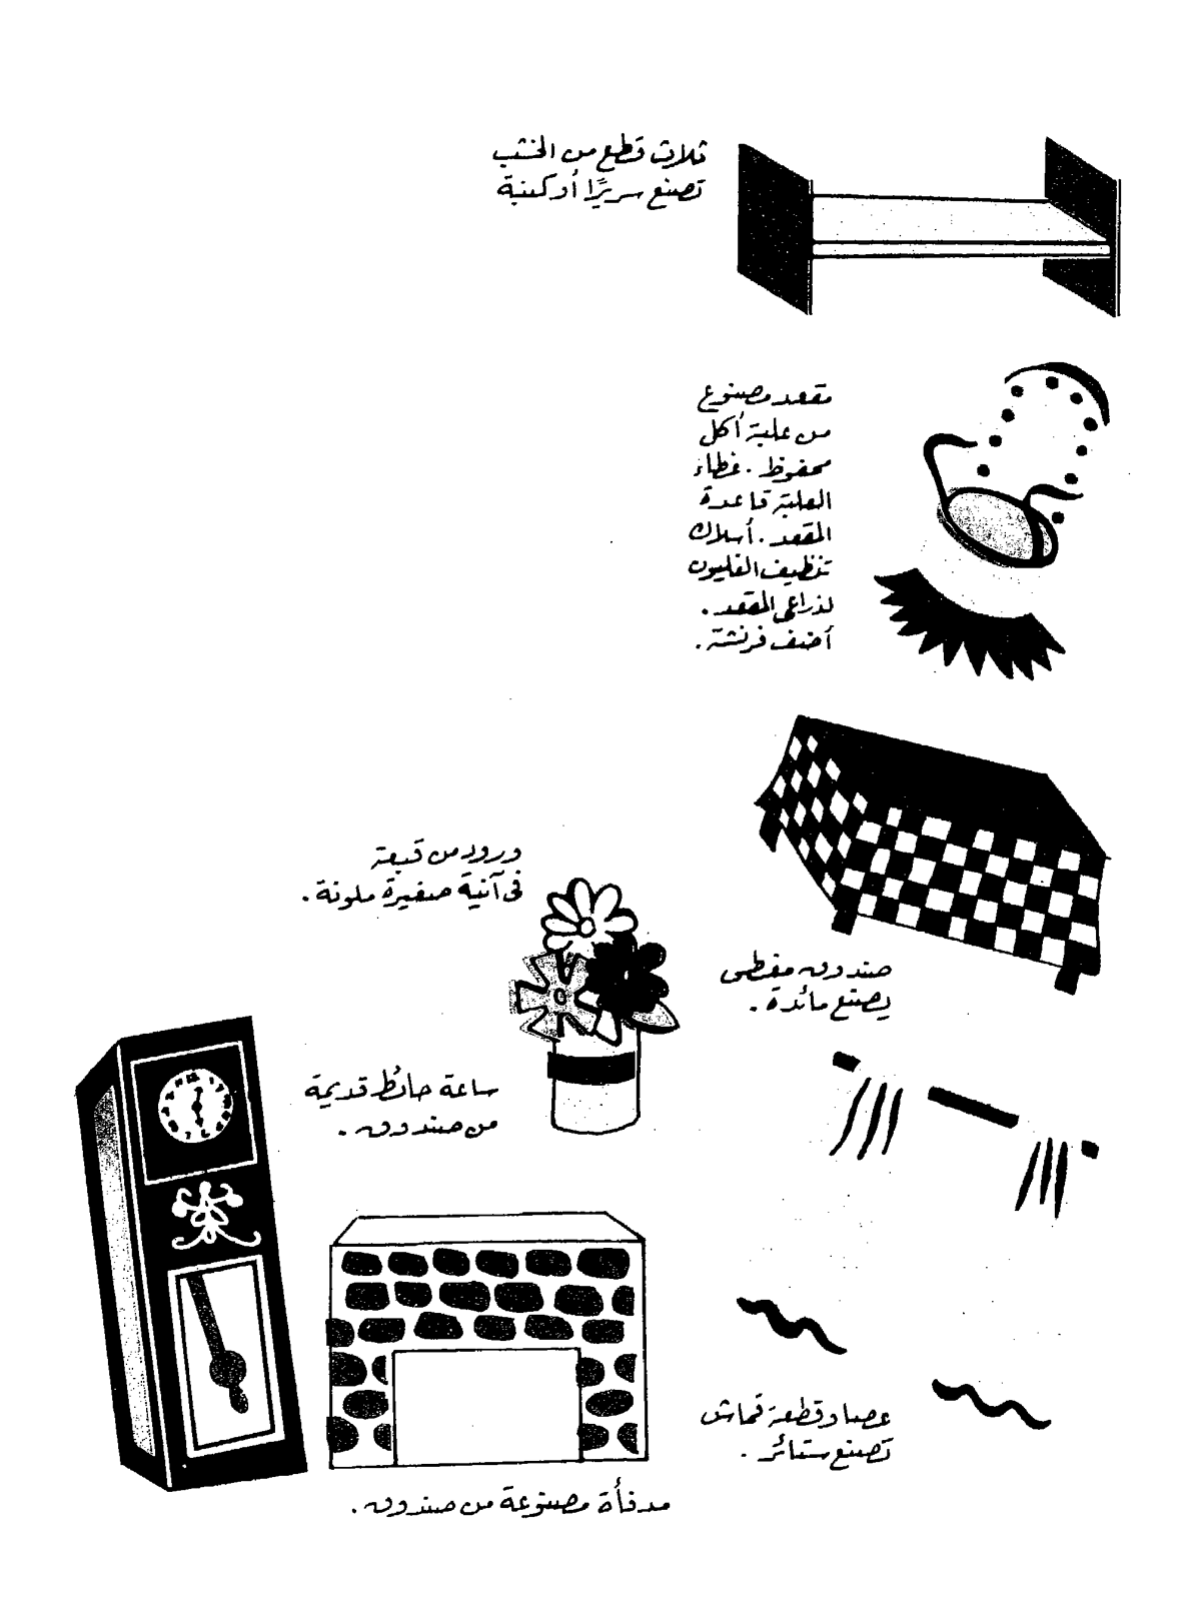 ثلاث قطع من الخشب
تصنع سريرًا أو كنبة
مقعد مصنوع
من علبة أكل
محفوظ . غطاء
العلبة قاعدة
المقعد . أسلاك
تنظيف الغليون
لذراعى المقعد .
أضف فرنشة .
ورود من قبعة
فى آنية صغيرة ملونة .
صندوق مغطى
يصنع مائدة .
ساعة حائط قديمة
من صندوق .
عصا وقطعة قماش
تصنع ستائر .
مدفأة مصنوعة من صندوق .